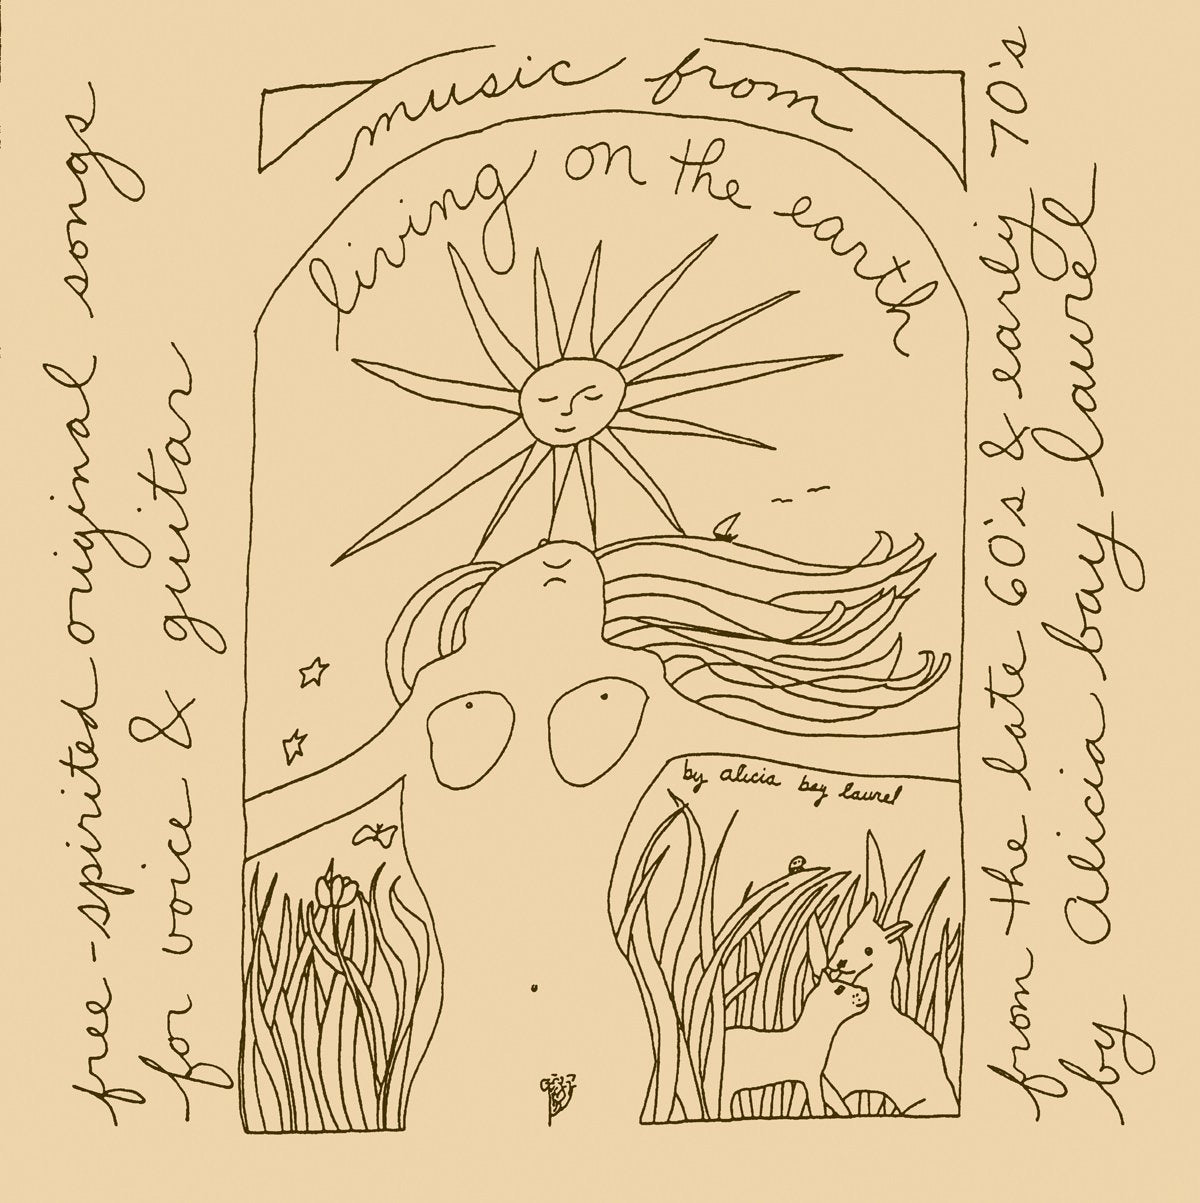 music from
living on the earth
by alicia bay laurel
free-spirited original songs
for voice & guitar
from the late 60's & early 70's
by Alicia bay laurel